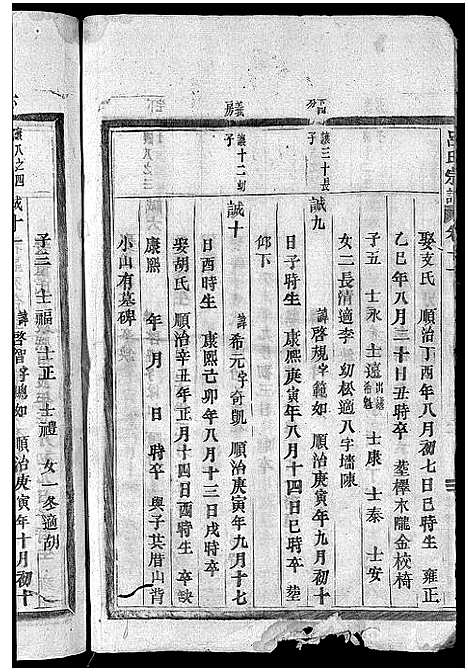 呂氏宗譜 卷十一
娶支氏 順治丁酉年八月初七日巳時生 雍正
乙巳年八月二十日丑時卒 塟櫸木隴金校椅
子五 士永 士遠 出繼希魁 士康 士泰 士安
女二長清適李 幼松適八字墻陳
讓三十長子
誠九 諱啓規字範如 順治庚寅年九月初十
日子時生 康熙庚寅年八月十四日巳時卒 塟
仰下
義房 讓十二幼子
誠十 諱希元字奇凱 順治庚寅年九月十七
日酉時生 康熙己卯年八月十三日戌時卒
娶胡氏 順治辛丑年正月十四日酉時生 卒缺
康熙 年 月 日 時卒 與子共厝山背
小山有墓碑
子三 士福 士正 士禮 女一冬適胡
讓八之四
誠十一 諱啓智字總如 順治庚寅年十月初十